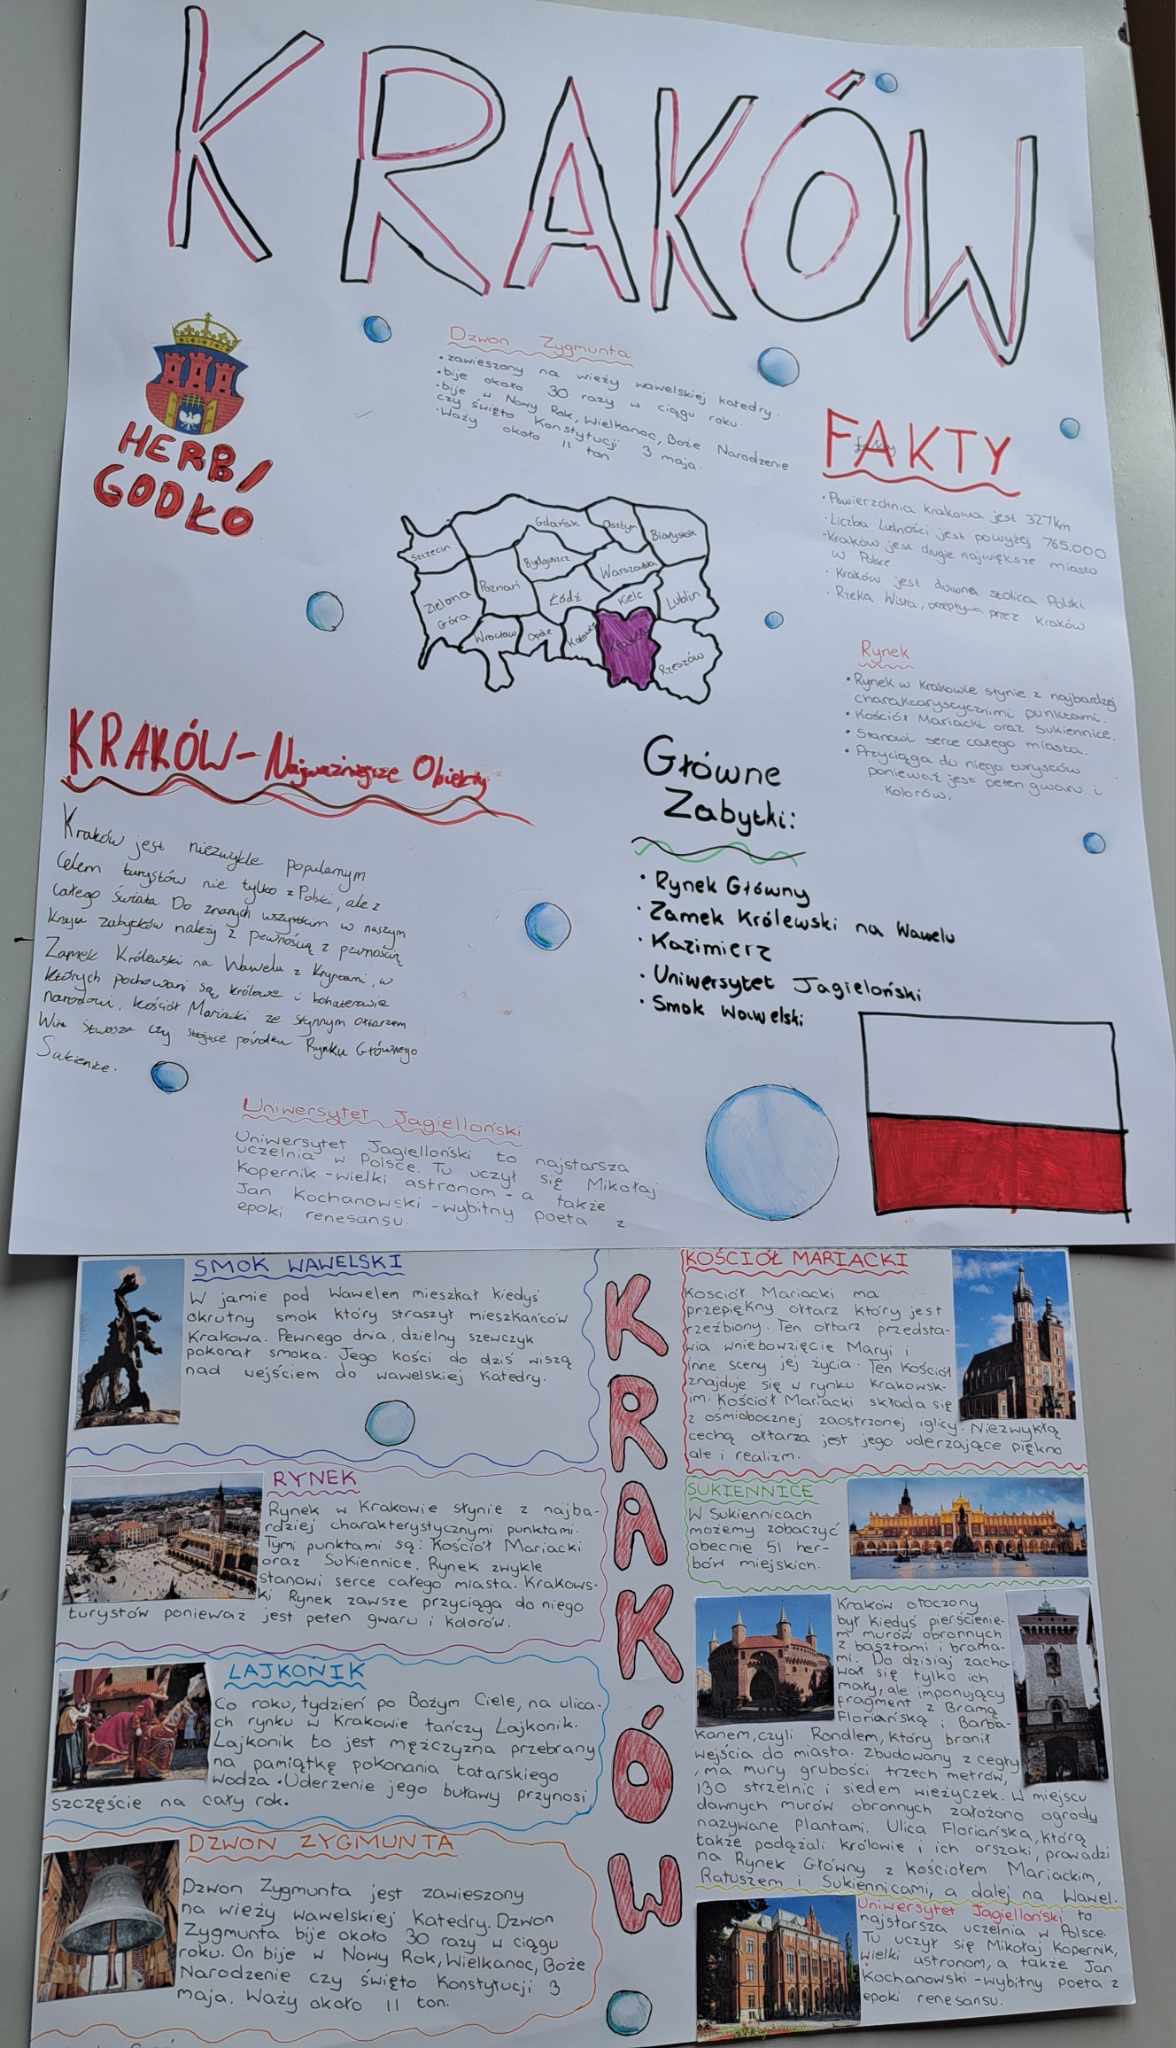 KRAKÓW
HERB/
GODŁO
Dzwon Zygmunta
• zawieszony na wieży wawelskiej katedry.
• bije około 30 razy w ciągu roku.
• bije w Nowy Rok, Wielkanoc, Boże Narodzenie
czy święto Konstytucji 3 maja.
• Waży około 11 ton
FAKTY
• Powierzchnia krakowa jest 327km
• Liczba Ludności jest powyżej 765.000
• Kraków jest drugie największe miasto
w Polsce
• Kraków jest dawna stolica Polski
• Rzeka Wisła, przepływa przez Kraków
Szczecin
Gdańsk
Olsztyn
Białystok
Bydgoszcz
Poznań
Warszawa
Zielona
Góra
Łódź
Kielc
Lublin
Wrocław
Opole
Katowice
Kraków
Rzeszów
Rynek
• Rynek w Krakowie słynie z najbardziej
charakterystycznymi punktami.
• Kościół Mariacki oraz Sukiennice.
• Stanowi serce całego miasta.
• Przyciąga do niego turystów
ponieważ jest pełen gwaru i
kolorów.
KRAKÓW - Najważniejsze Obiekty
Kraków jest niezwykle popularnym
celem turystów nie tylko z Polski, ale z
całego świata Do znanych wszystkim w naszym
kraju zabytków należy z pewnością z pewnością
Zamek Królewski na Wawelu z Kryptami, w
których pochowani są królowie i bohaterowie
narodowi, kościół Mariacki ze słynnym ołtarzem
Wita Stwosza czy stojące pośrodku Rynku Głównego
Sukiennice.
Główne
Zabytki:
• Rynek Główny
• Zamek Królewski na Wawelu
• Kazimierz
• Uniwersytet Jagieloński
• Smok Wawelski
Uniwersytet Jagielloński
Uniwersytet Jagielloński to najstarsza
uczelnia w Polsce. Tu uczył się Mikołaj
Kopernik - wielki astronom - a także
Jan Kochanowski - wybitny poeta z
epoki renesansu.
SMOK WAWELSKI
W jamie pod Wawelem mieszkał kiedyś
okrutny smok który straszył mieszkańców
Krakowa. Pewnego dnia, dzielny szewczyk
pokonał smoka. Jego kości do dziś wiszą
nad wejściem do wawelskiej Katedry.
RYNEK
Rynek w Krakowie słynie z najba-
rdziej charakterystycznymi punktami.
Tymi punktami są: Kościół Mariacki
oraz Sukiennice. Rynek zwykle
stanowi serce całego miasta. Krakows-
ki Rynek zawsze przyciąga do niego
turystów ponieważ jest pełen gwaru i kolorów.
LAJKONIK
Co roku, tydzień po Bożym Ciele, na ulica-
ch rynku w Krakowie tańczy Lajkonik.
Lajkonik to jest mężczyzna przebrany
na pamiątkę pokonania tatarskiego
wodza. Uderzenie jego buławy przynosi
szczęście na cały rok.
DZWON ZYGMUNTA
Dzwon Zygmunta jest zawieszony
na wieży wawelskiej Katedry. Dzwon
Zygmunta bije około 30 razy w ciągu
roku. On bije w Nowy Rok, Wielkanoc, Boże
Narodzenie czy święto Konstytucji 3
maja. Waży około 11 ton.
KRAKÓW
KOŚCIÓŁ MARIACKI
Kościół Mariacki ma
przepiękny ołtarz który jest
rzeźbiony. Ten ołtarz przedsta-
wia wniebowzięcie Maryi i
inne sceny jej życia. Ten Kościół
znajduje się w rynku Krakowsk-
im. Kościół Mariacki składa się
z ośmiobocznej zaostrzonej iglicy. Niezwykłą
cechą ołtarza jest jego uderzające piękno
ale i realizm.
SUKIENNICE
W Sukiennicach
możemy zobaczyć
obecnie 51 her-
bów miejskich.
Kraków otoczony
był kiedyś pierścienie-
m murów obronnych
z basztami i brama-
mi. Do dzisiaj zacho-
wał się tylko ich
mały, ale imponujący
fragment z Bramą
Floriańską i Barba-
kanem, czyli Rondlem, który bronił
wejścia do miasta. Zbudowany z cegły
, ma mury grubości trzech metrów,
130 strzelnic i siedem wieżyczek. W miejscu
dawnych murów obronnych założono ogrody
nazywane Plantami. Ulica Floriańska, którą
także podążali królowie i ich orszaki, prowadzi
na Rynek Główny z Kościołem Mariackim,
Ratuszem i Sukiennicami, a dalej na Wawel.
Uniwersytet Jagielloński to
najstarsza uczelnia w Polsce.
Tu uczył się Mikołaj Kopernik,
wielki astronom, a także Jan
Kochanowski - wybitny poeta z
epoki renesansu.